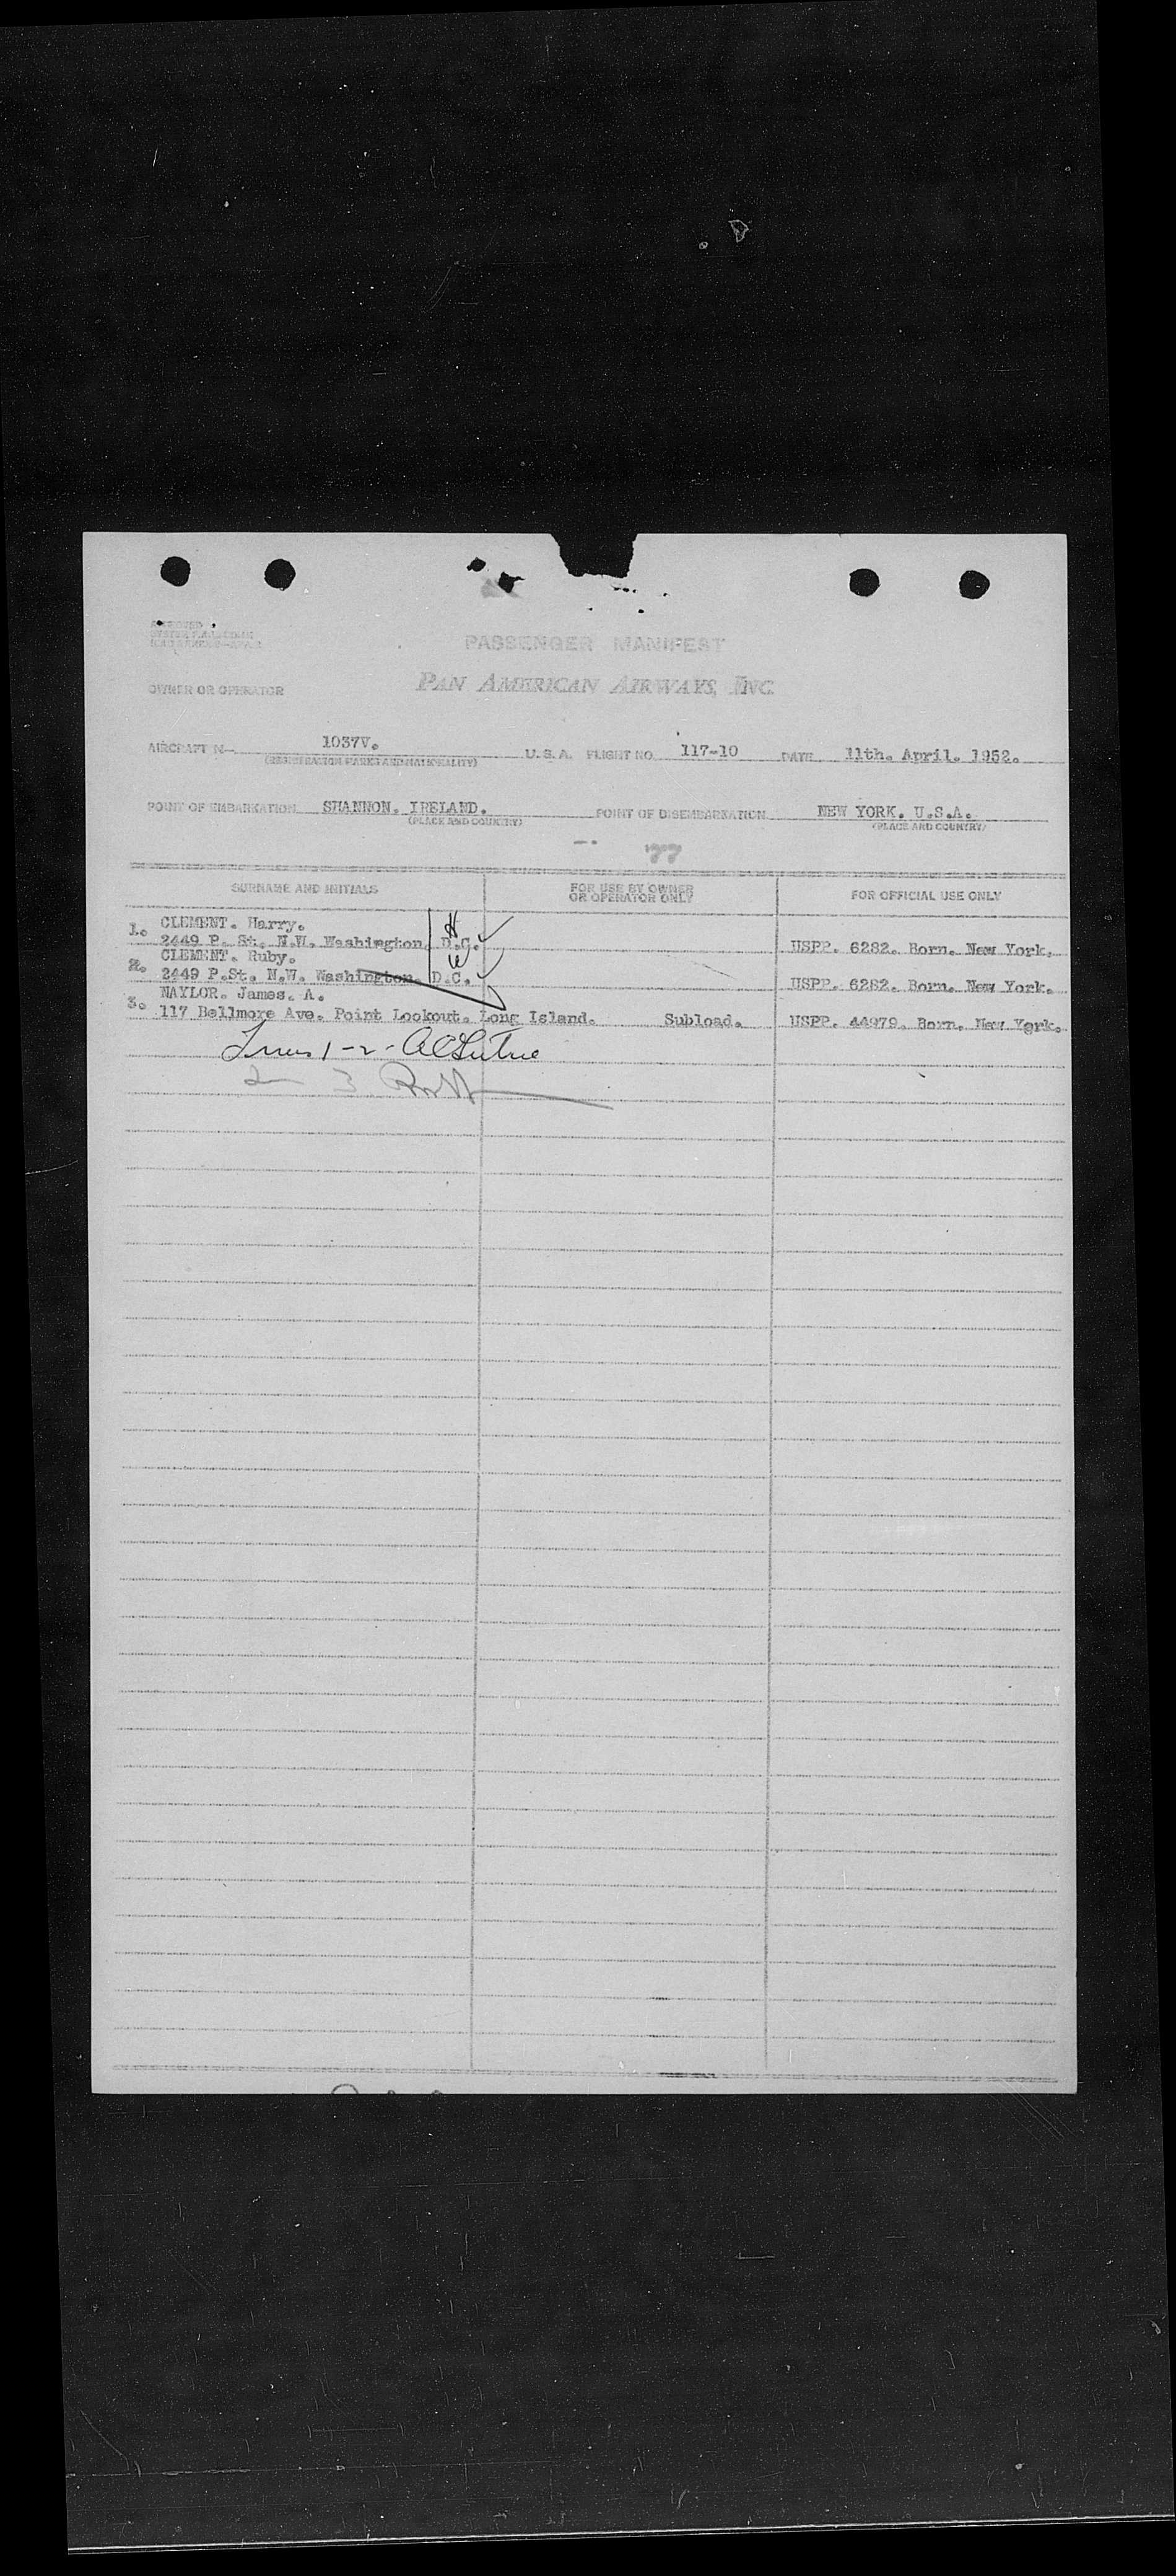 APPROVED
PASSENGER MANIFEST
OWNER OR OPERATOR PAN AMERICAN AIRWAYS, INC.
AIRCRAFT N— 1037V. U.S.A. FLIGHT NO. 117-10 DATE 11th. April. 1952.
(REGISTRATION MARKS AND NATIONALITY)
POINT OF EMBARKATION SHANNON. IRELAND. POINT OF DISEMBARKATION NEW YORK. U.S.A.
(PLACE AND COUNTRY) (PLACE AND COUNTRY)
77
SURNAME AND INITIALS FOR USE BY OWNER OR OPERATOR ONLY FOR OFFICIAL USE ONLY
1. CLEMENT. Harry. H
2449 P. St. N.W. Washington. D.C. USPP. 6282. Born. New York.
2. CLEMENT. Ruby. W
2449 P.St. N.W. Washington. D.C. USPP. 6282. Born. New York.
3. NAYLOR. James. A.
117 Bellmore Ave. Point Lookout. Long Island. Subload. USPP. 44979. Born. New York.
1-2-
3